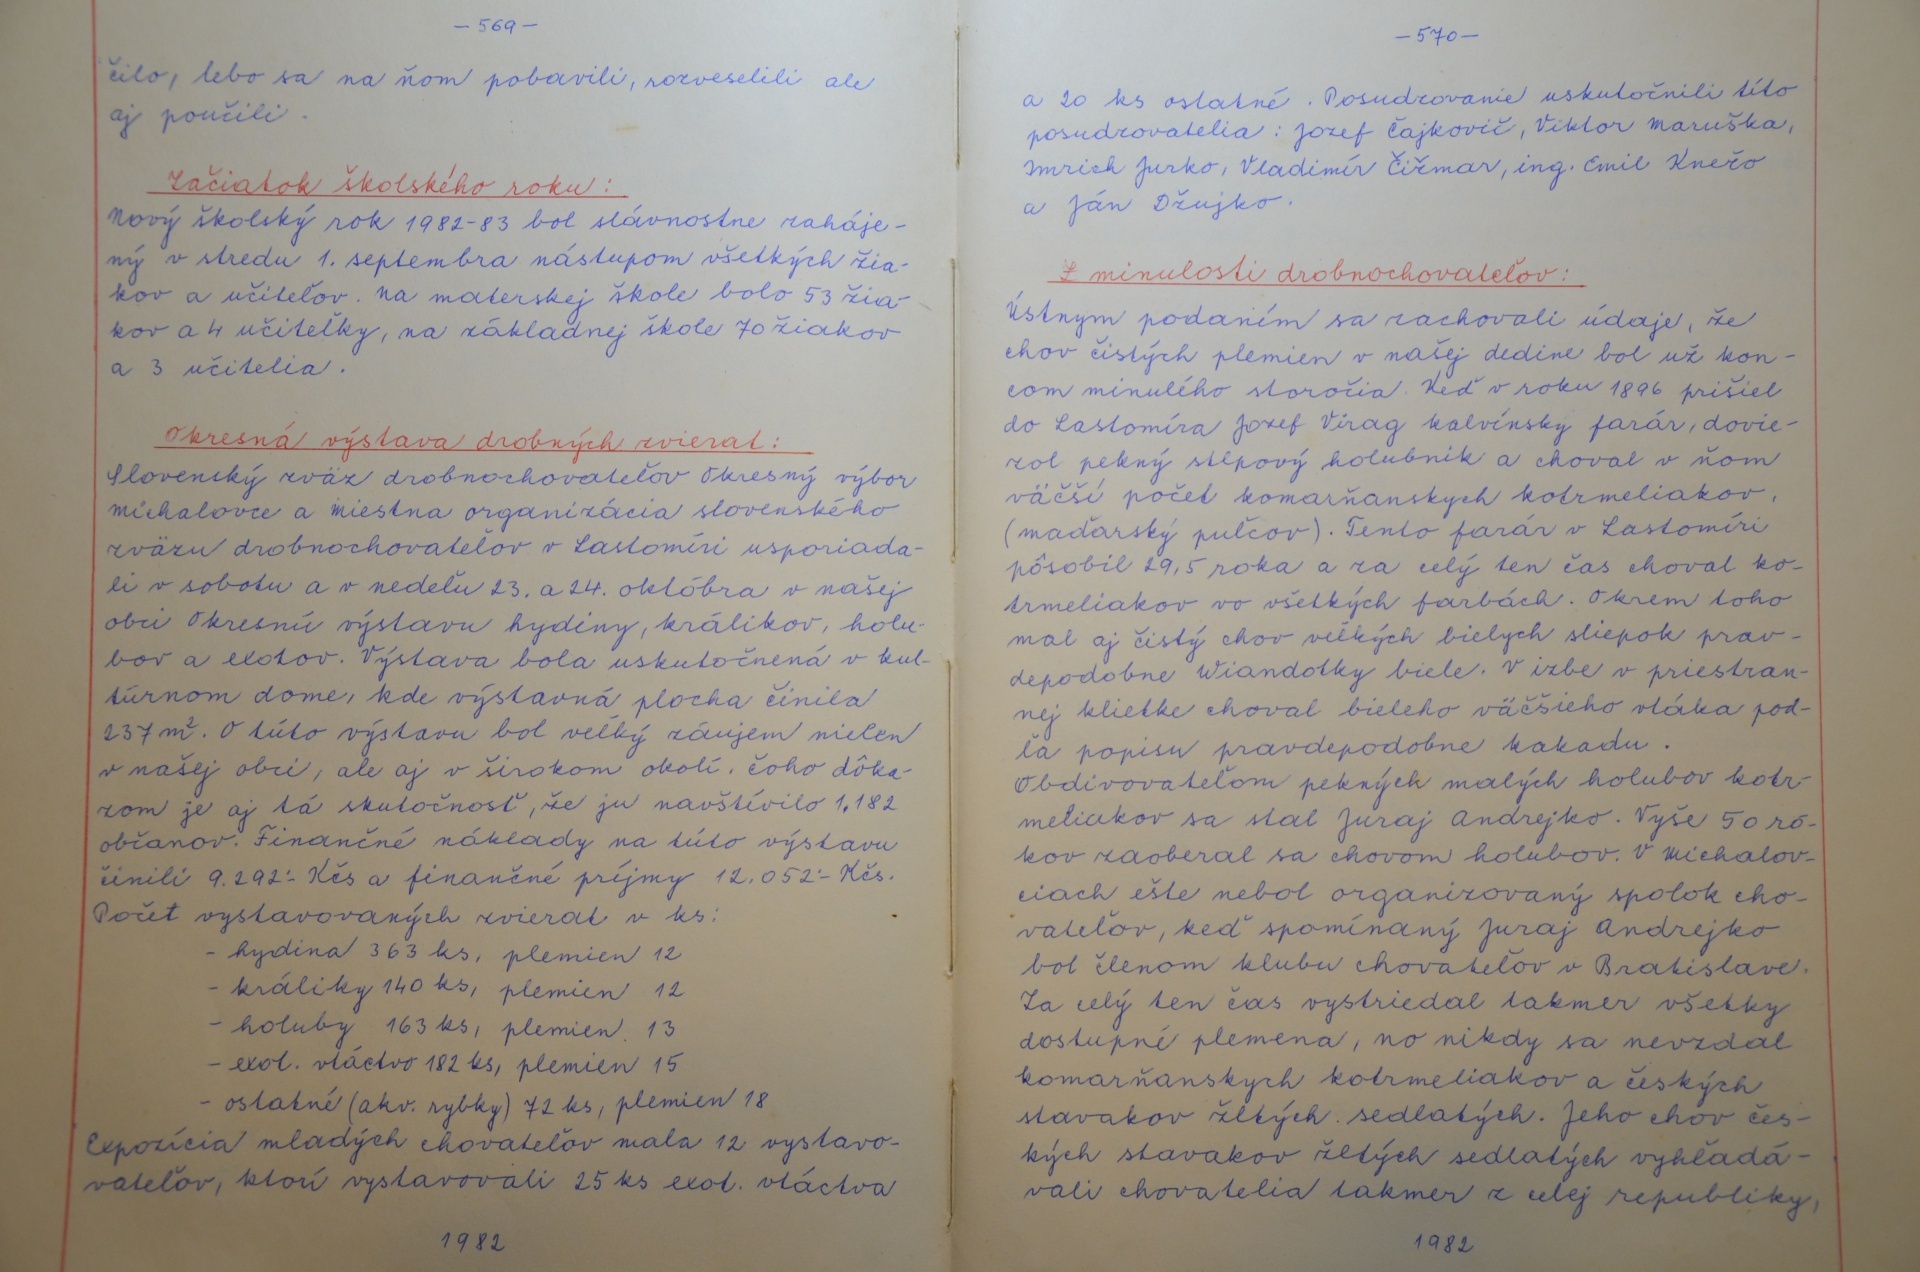 - 569 -
čilo, lebo sa na ňom pobavili, rozveselili ale
aj poučili.
Začiatok školského roku:
Nový školský rok 1982-83 bol slávnostne zaháje-
ný v stredu 1. septembra nástupom všetkých žia-
kov a učiteľov. Na materskej škole bolo 53 žia-
kov a 4 učiteľky, na základnej škole 70 žiakov
a 3 učitelia.
Okresná výstava drobných zvierat:
Slovenský zväz drobnochovateľov Okresný výbor
Michalovce a Miestna organizácia slovenského
zväzu drobnochovateľov v Lastomíri usporiada-
li v sobotu a v nedeľu 23. a 24. októbra v našej
obci Okresnú výstavu hydiny, králikov, holu-
bov a exotov. Výstava bola uskutočnená v kul-
túrnom dome, kde výstavná plocha činila
237 m². O túto výstavu bol veľký záujem nielen
v našej obci, ale aj v širokom okolí. čoho dôka-
zom je aj tá skutočnosť, že ju navštívilo 1.182
občanov. Finančné náklady na túto výstavu
činili 9.292.- Kčs a finančné príjmy 12.052.- Kčs.
Počet vystavovaných zvierat v ks:
- hydina 363 ks, plemien 12
- králiky 140 ks, plemien 12
- holuby 163 ks, plemien 13
- exot. vtáctvo 182 ks, plemien 15
- ostatné (akv. rybky) 72 ks, plemien 18
Expozícia mladých chovateľov mala 12 vystavo-
vateľov, ktorí vystavovali 25 ks exot. vtáctva
1982
- 570 -
a 20 ks ostatné. Posudzovanie uskutočnili títo
posudzovatelia: Jozef Čajkovič, Viktor Maruška,
Imrich Jurko, Vladimír Čižmar, ing. Emil Knežo
a Ján Džujko.
Z minulosti drobnochovateľov:
Ústnym podaním sa zachovali údaje, že
chov čistých plemien v našej dedine bol už kon-
com minulého storočia. Keď v roku 1896 prišiel
do Lastomíra Jozef Virag kalvínsky farár, dovie-
zol pekný stlpový holubník a choval v ňom
väčší počet komarňanskych kotrmeliakov,
(maďarský pulčov). Tento farár v Lastomíri
pôsobil 29,5 roka a za celý ten čas choval ko-
trmeliakov vo všetkých farbách. Okrem toho
mal aj čistý chov veľkých bielych sliepok prav-
depodobne Wiandotky biele. V izbe v priestran-
nej klietke choval bieleho väčšieho vtáka pod-
ľa popisu pravdepodobne kakadu.
Obdivovateľom pekných malých holubov kotr-
meliakov sa stal Juraj Andrejko. Vyše 50 ro-
kov zaoberal sa chovom holubov. V Michalov-
ciach ešte nebol organizovaný spolok cho-
vateľov, keď spomínaný Juraj Andrejko
bol členom klubu chovateľov v Bratislave.
Za celý ten čas vystriedal takmer všetky
dostupné plemena, no nikdy sa nevzdal
komarňanskych kotrmeliakov a českých
stavakov žltých sedlatých. Jeho chov čes-
kých stavakov žltých sedlatých vyhľadá-
vali chovatelia takmer z celej republiky,
1982